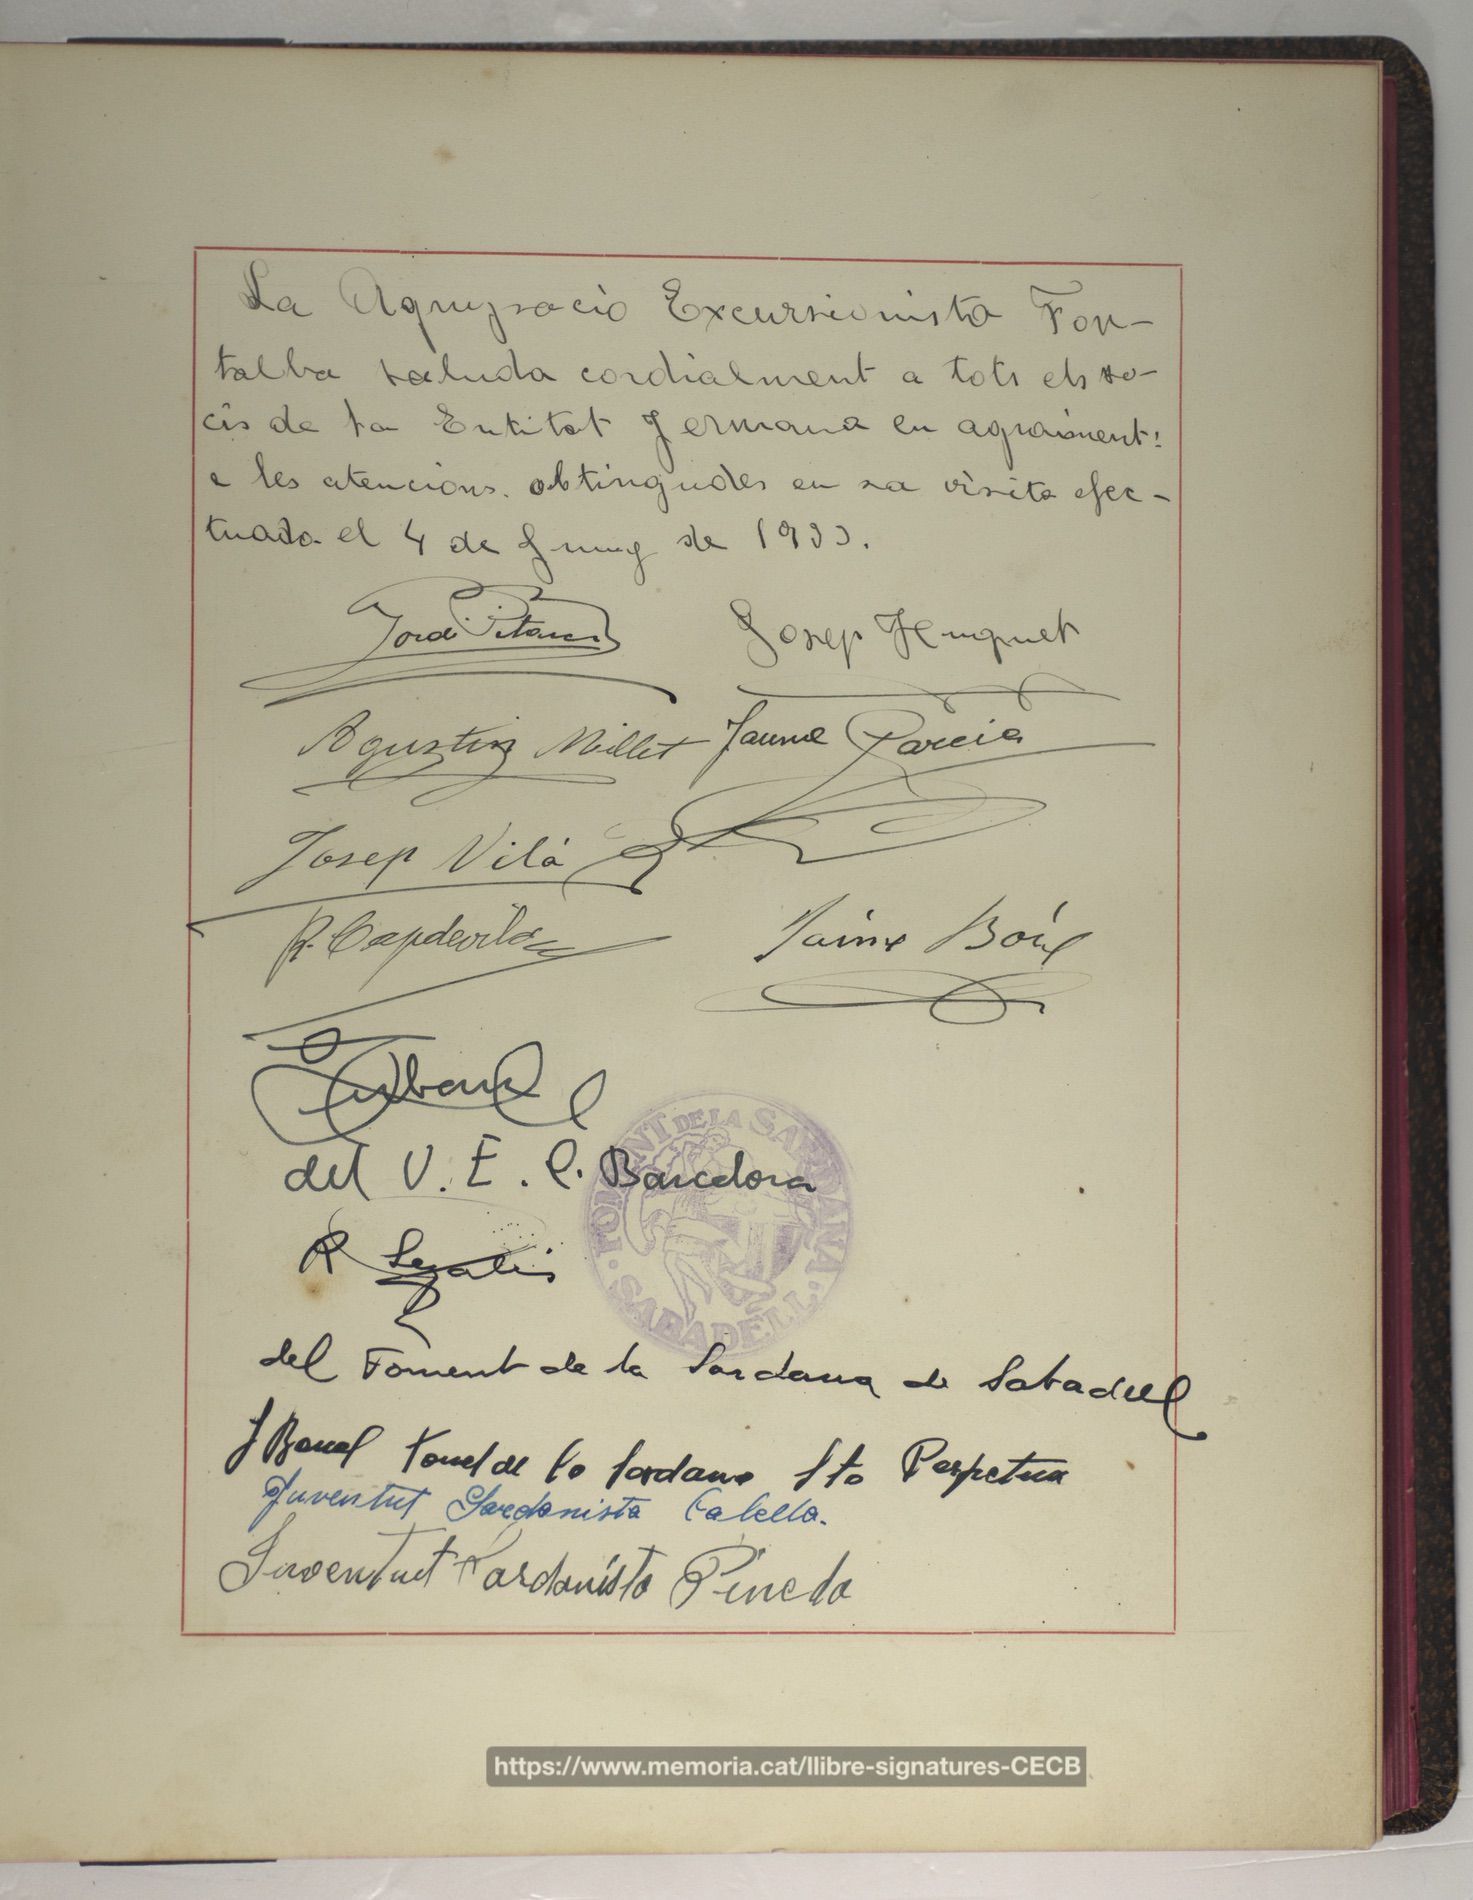 La Agrupació Excursionista Fon-
talba saluda cordialment a tots els so-
cis de la Entitat Germana en agraiment:
a les atencions. obtingudes en sa visita efec-
tuada el 4 de Juny de 1933.
Jordi
Josep Huguet
Agustin Millet Jaume Garcia
Josep Vilá
R. Capdevila
Jaime Bóix
del U. E. C. Barcelona
FOMENT DE LA SARDANA
· SABADELL ·
R
del Foment de la Sardana de Sabadell
J Bonet Foment de la Sardana Sta Perpetua
Juventut Sardanista Calella.
Juventut Sardanista Pineda
https://www.memoria.cat/llibre-signatures-CECB